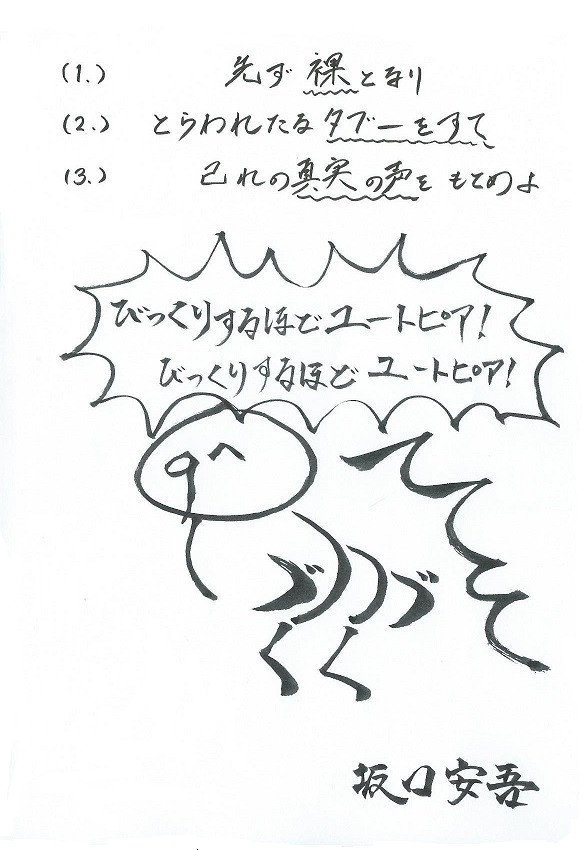 (1.) 先ず裸となり
(2.) とらわれたるタブーをすて、
(3.) 己れの真実の声をもとめよ
びっくりするほどユートピア!
びっくりするほどユートピア!
坂口安吾